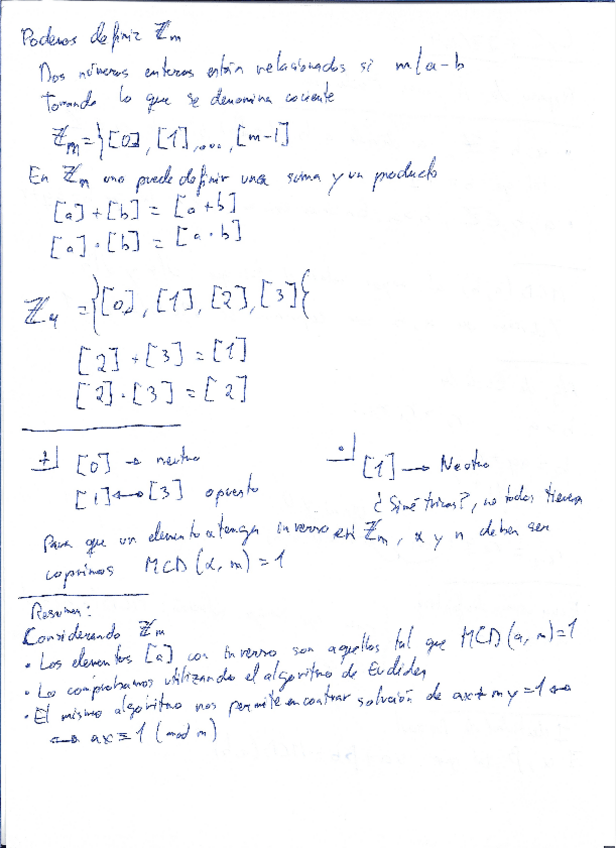 Podemos definir ℤm
Dos números enteros están relacionados si m/a-b
Tomando lo que se denomina cociente
ℤm = }[0], [1], ..., [m-1]
En ℤm uno puede definir una suma y un producto
[a] + [b] = [a+b]
[a] · [b] = [a·b]
ℤ4 = }[0], [1], [2], [3]{
[2] + [3] = [1]
[2] · [3] = [2]
+ [0] → neutro
[1] ↔ [3] opuesto
· [1] → Neutro
¿Simétricos?, no todos tienen
Para que un elemento α tenga inverso en ℤm, α y m deben ser
coprimos MCD(α, m) = 1
Resumen:
Considerando ℤm
• Los elementos [a] con inverso son aquellos tal que MCD(a, m)=1
• Lo comprobamos utilizando el algoritmo de Euclides
• El mismo algoritmo nos permite encontrar solución de ax + my = 1 ↔
↔ ax ≡ 1 (mod m)